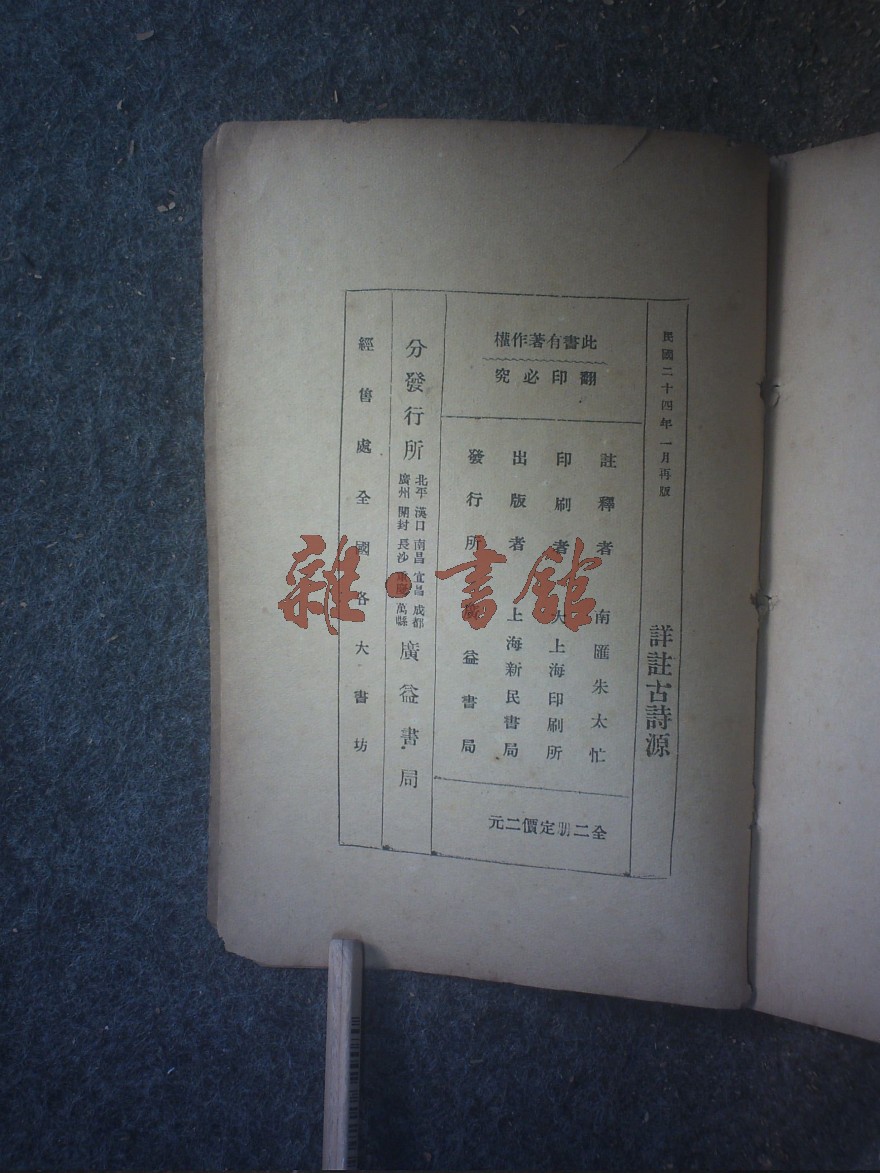 民國二十四年一月再版
詳註古詩源
此書有著作權
翻印必究
註釋者 南匯朱太忙
印刷者 大上海印刷所
出版者 上海新民書局
發行所 廣益書局
全二册定價二元
分發行所
北平 漢口 南昌 宜昌 成都
廣州 開封 長沙 重慶 萬縣
廣益書局
經售處全國各大書坊
雜·書館